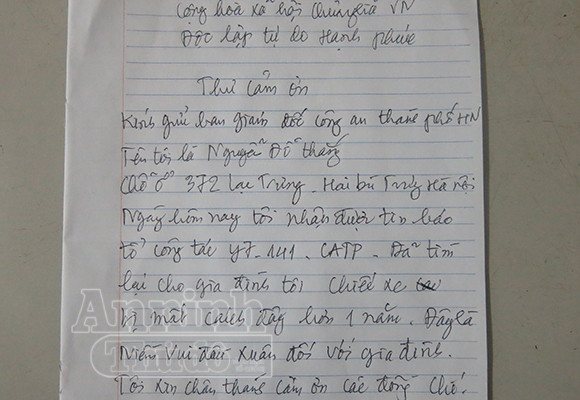 Cộng hòa xã hội Chủ nghĩa VN
Độc lập tự do Hạnh phúc
Thư cảm ơn
Kính gửi ban giám đốc công an thành phố HN
Tên tôi là Nguyễn Đỗ Thắng
Chỗ ở 372 Lạc Trung. Hai bà Trưng Hà nội
Ngày hôm nay tôi nhận được tin báo
tổ công tác Y7.141. CATP. Đã tìm
lại cho gia đình tôi chiếc xe
bị mất cách đây hơn 1 năm. Đây là
Niềm vui đầu xuân đối với gia đình.
Tôi xin chân thành cảm ơn các đồng chí.
An ninh
Thủ đô